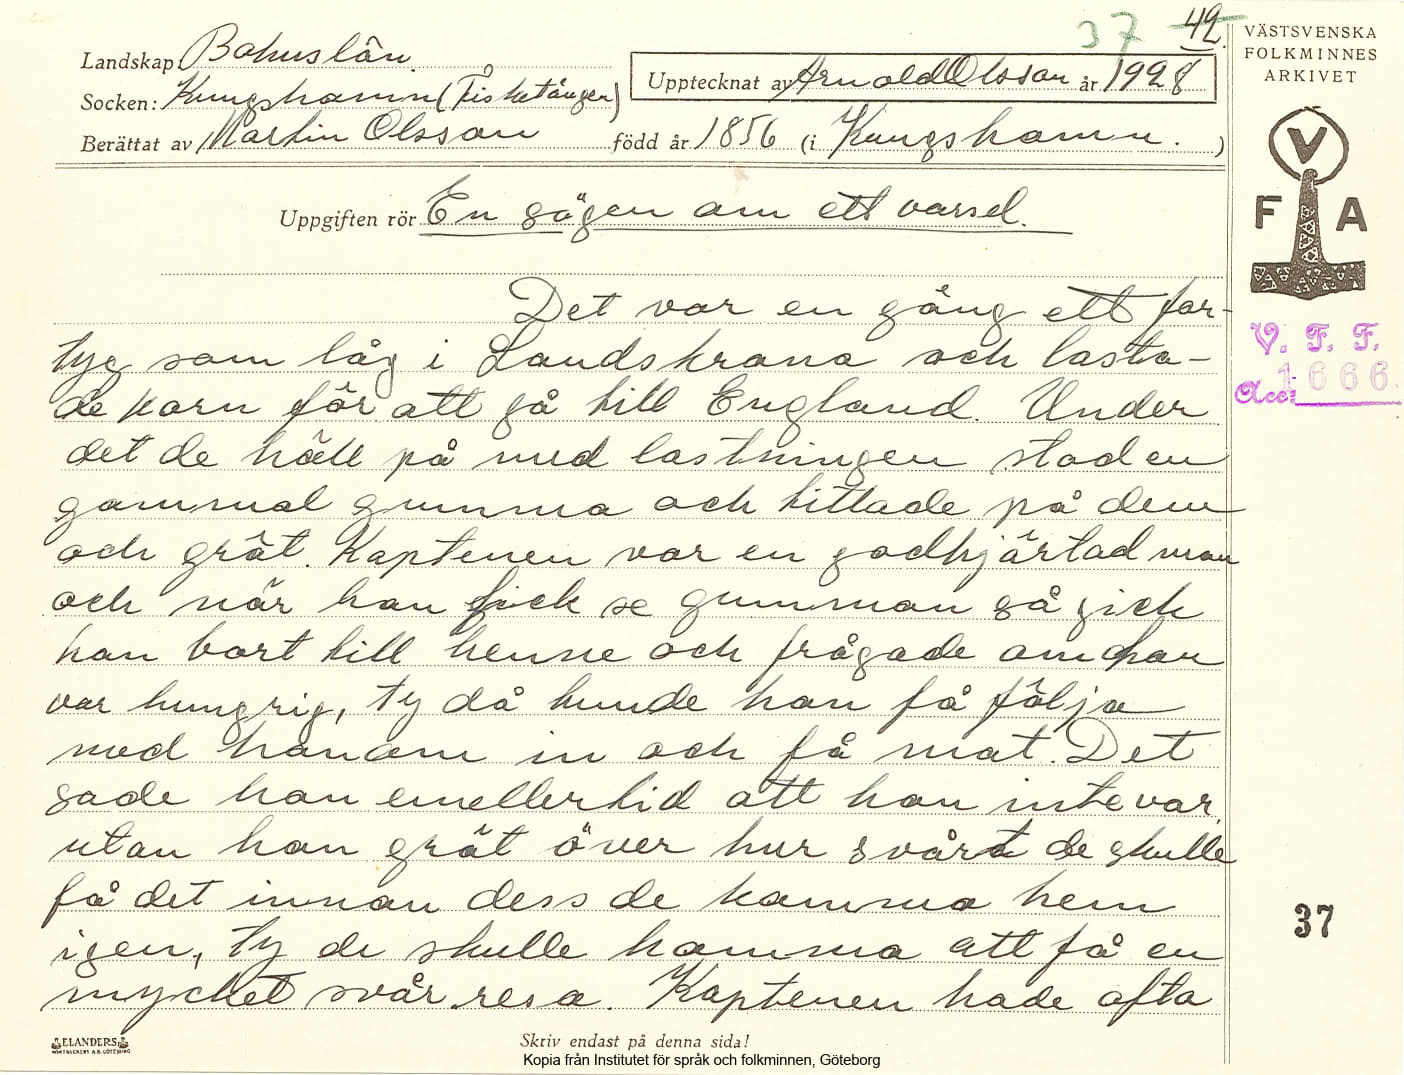 37 42.
Landskap: Bohuslän.
Socken: Kungshamn (Fisketången)
Upptecknat av Arnold Olsson år 1928
Berättat av Martin Olsson född år 1856 (i Kungshamn. )
Uppgiften rör En sägen om ett varsel.
Det var en gång ett far-
tyg som låg i Landskrona och lasta-
de korn för att gå till England. Under
det de höll på med lastningen stod en
gammal gumma och tittade på dem
och grät. Kaptenen var en godhjärtad man
och när han fick se gumman så gick
han bort till henne och frågade om hon
var hungrig, ty då kunde hon få följa
med honom in och få mat. Det
sade hon emellertid att hon inte var,
utan hon grät över hur svårt de skulle
få det innan dess de komma hem
igen, ty de skulle komma att få en
mycket svår resa. Kaptenen hade ofta
VÄSTSVENSKA
FOLKMINNES
ARKIVET
V
F A
V. F. F.
Acc: 1666
37
ELANDERS
BOKTRYCKERI A.B. GÖTEBORG
Skriv endast på denna sida!
Kopia från Institutet för språk och folkminnen, Göteborg